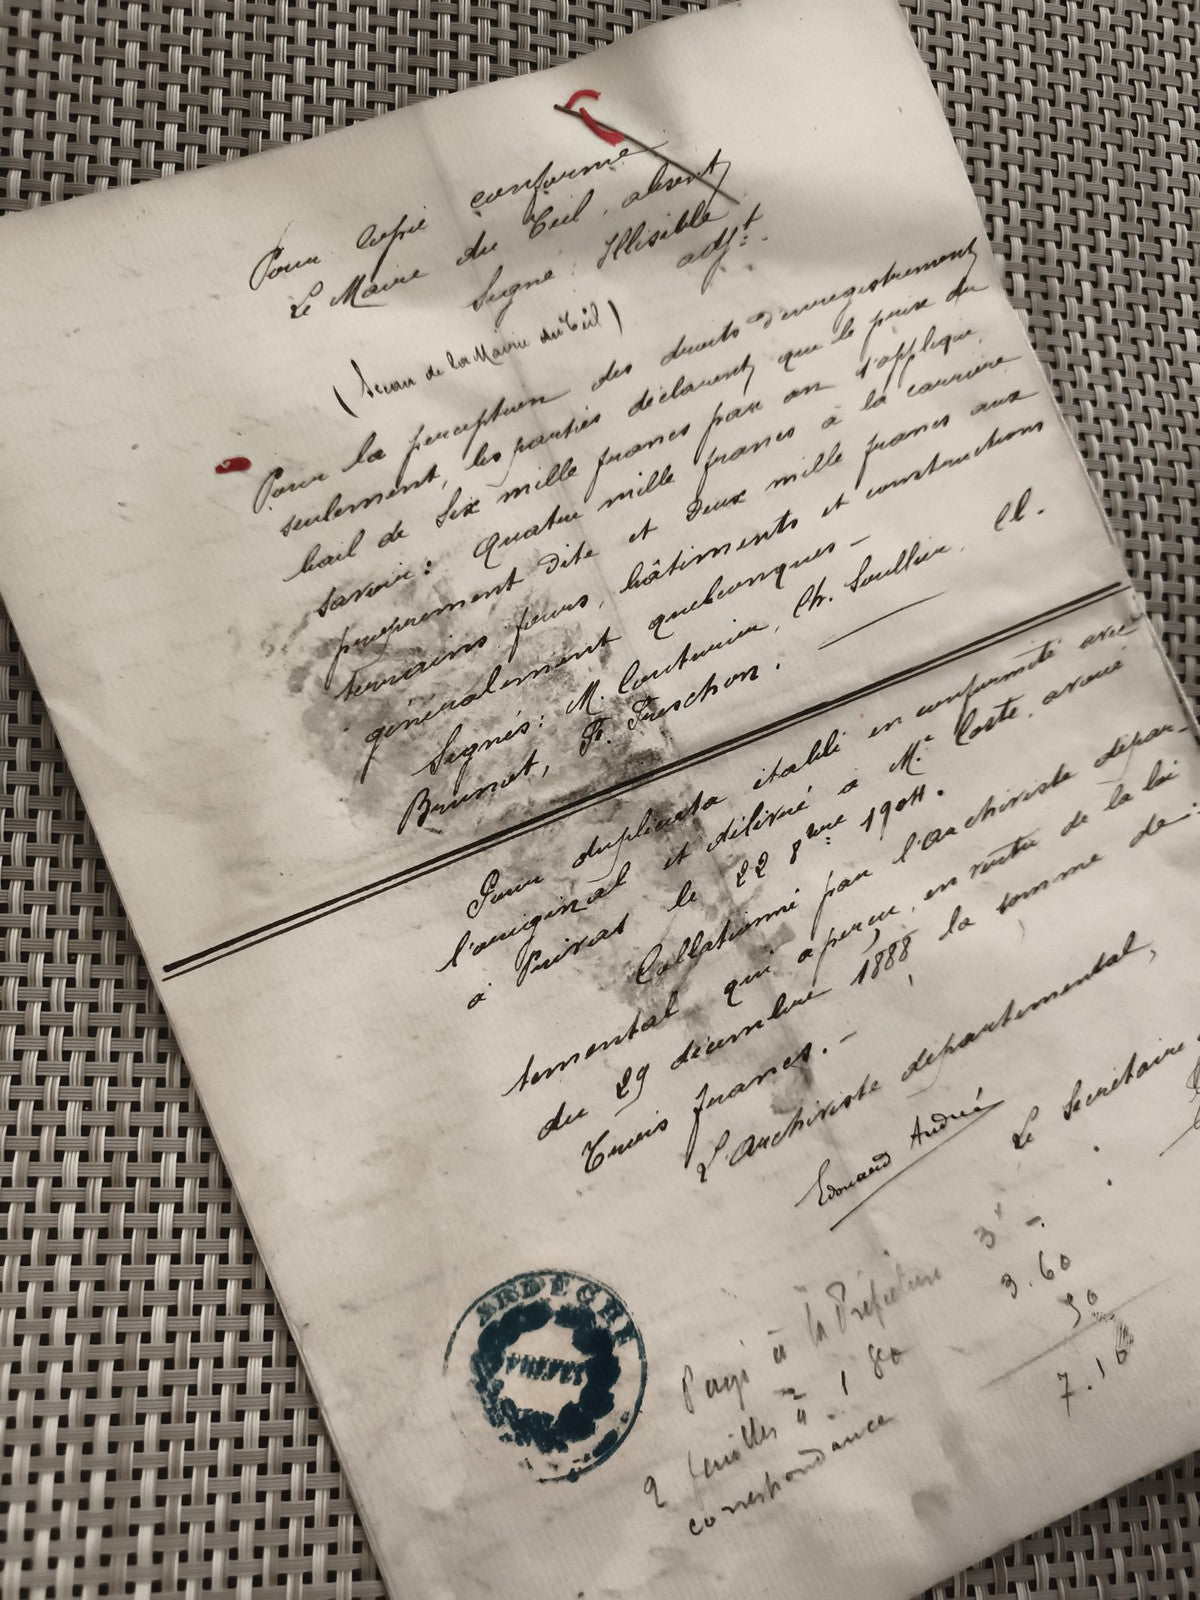 Pour Copie conforme
Le Maire du Teil, absent,
Signé: Illisible
adjt.
(Sceau de la Mairie du Teil)
Pour la perception des droits d'enregistrement
seulement, les parties déclarent que le prix du
bail de Six mille francs par an s'applique,
savoir: Quatre mille francs à la carrière
proprement dite et Deux mille francs aux
terrains, fours, bâtiments et constructions
généralement quelconques —
Signés: M. Couturier, Ch. Soullier, Cl.
Brunet, F. Freschon.
Pour duplicata établi en conformité avec
l'original et délivré à Me. Coste, avoué
à Privas le 22 8bre 1904.
Collationné par l'Archiviste dépar-
temental qui a perçu, en vertu de la loi
du 29 décembre 1888 la somme de:
Trois francs. —
L'Archiviste départemental,
Edouard André
Le Secrétaire
Payé à la Préfecture 3f —
2 feuilles à 1 80 3.60
correspondance 50
7.10
ARDÈCHE
PRÉFET